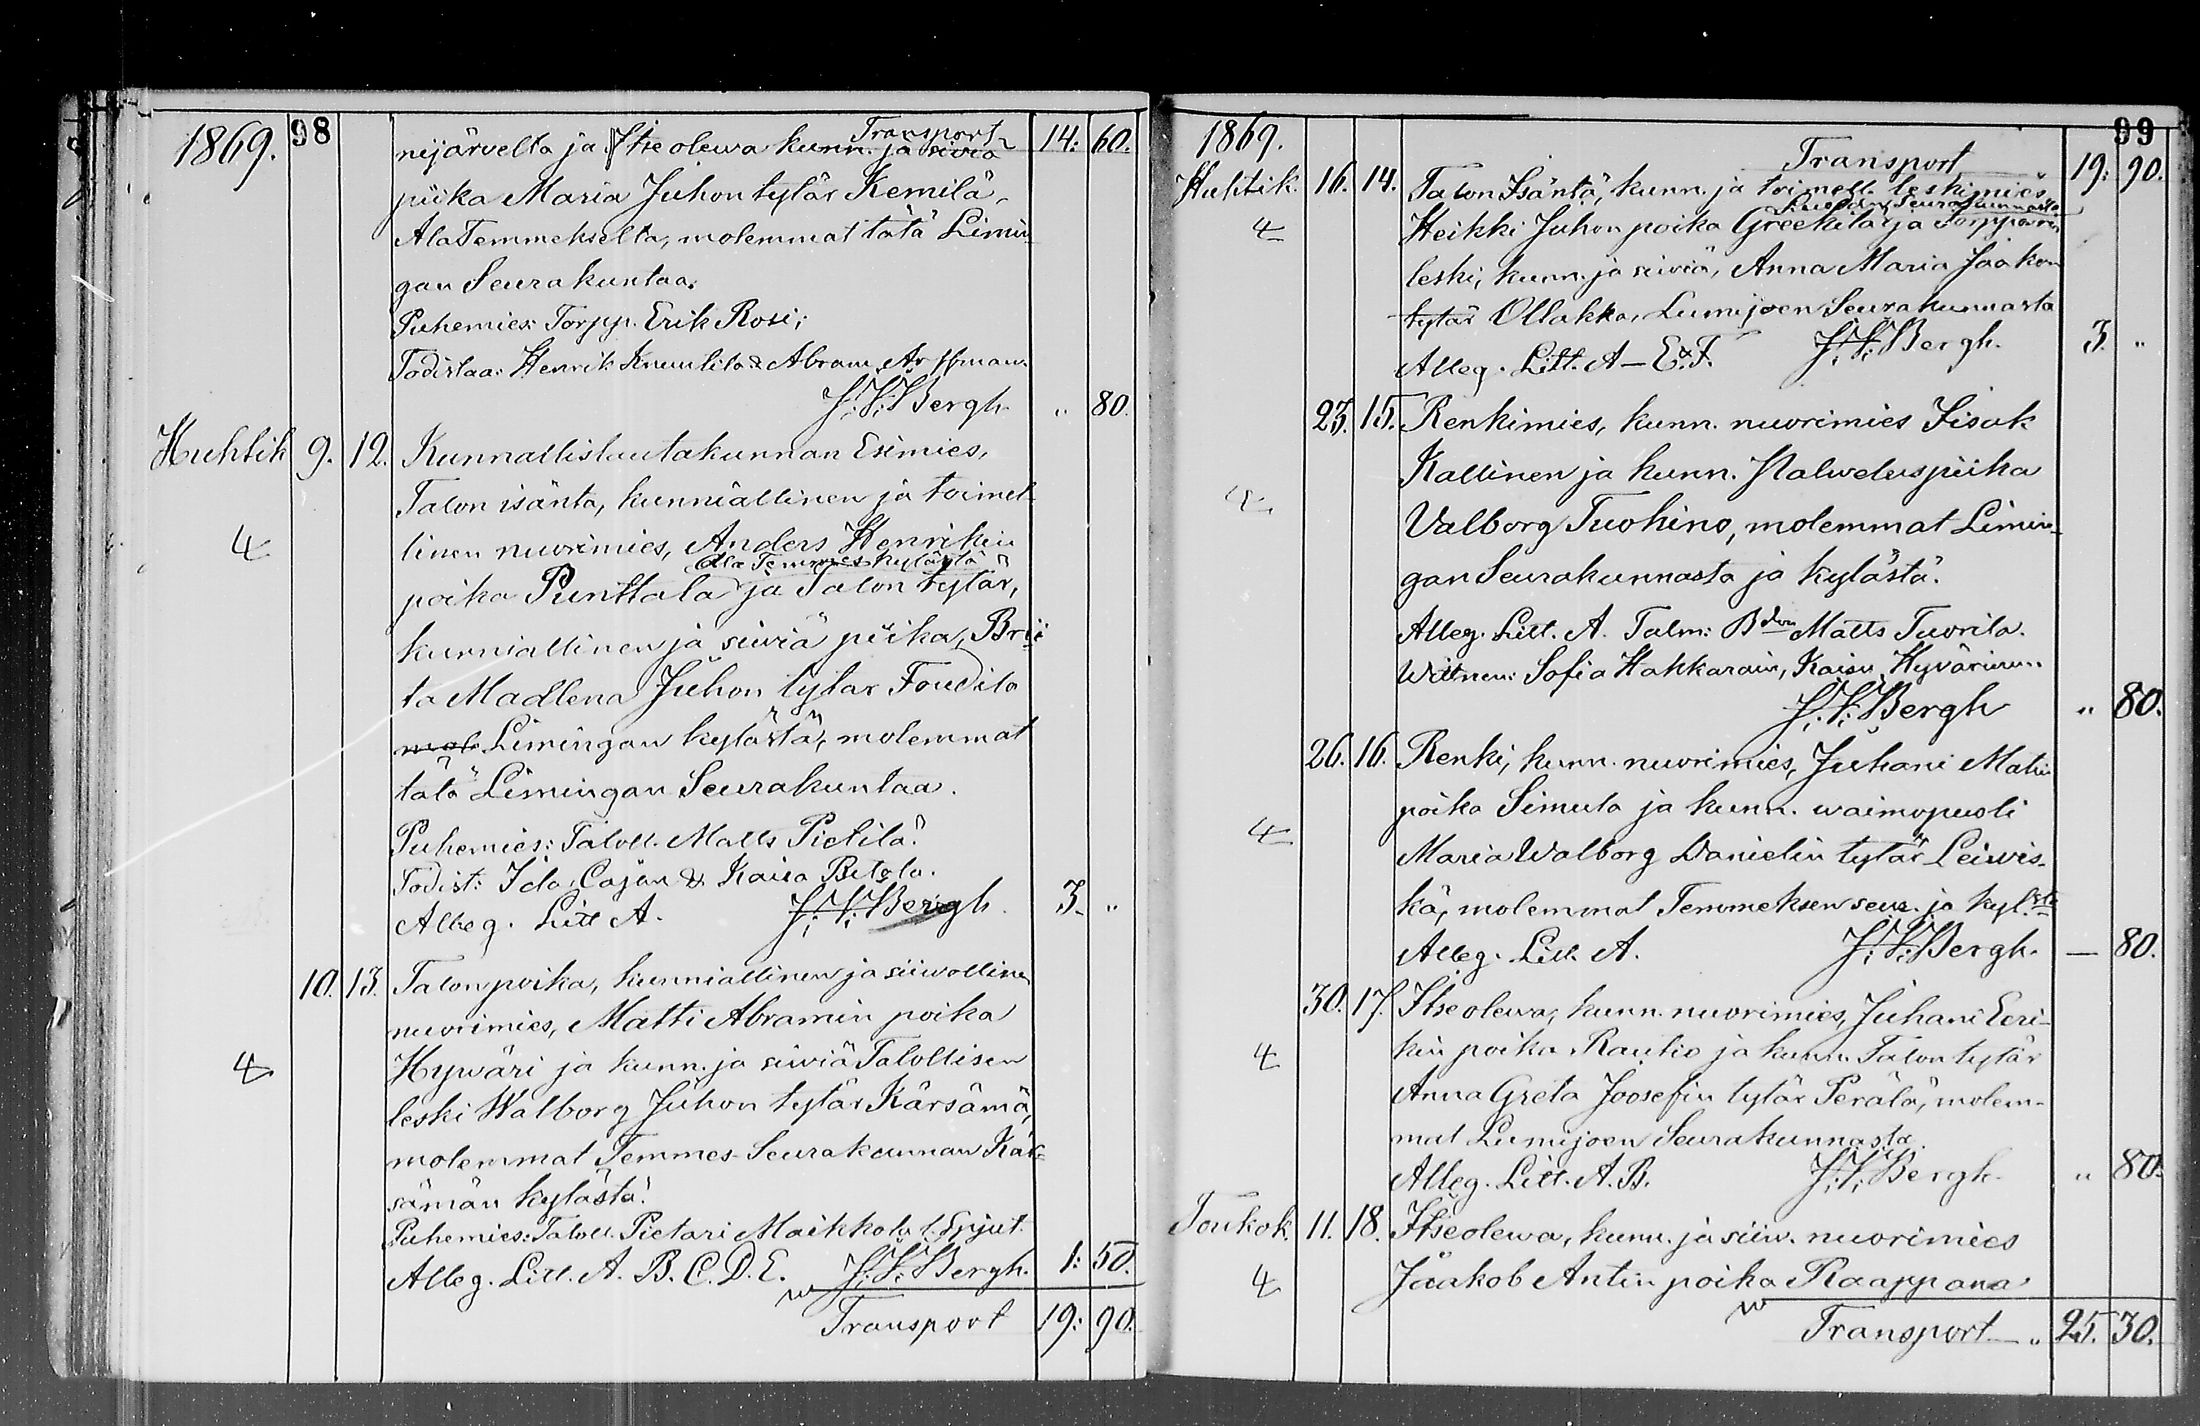 1869. 98
Transport 14: 60.
nijärvelta ja Itse olewa kunn. ja siviä
piika Maria Juhon tytär Kemilä,
Ala Temmekseltä, molemmat tätä Limin-
gan Seurakuntaa.
Puhemies: Torpp. Erik Rosi;
Todistaa: Henrik Knuutila & Abram
J. V. Bergh. " 80.
Huhtik 9. 12. Kunnallislautakunnan Esimies,
Talon isäntä, kunniallinen ja toimel-
4 linen nuorimies, Anders Henrikin
Ala Temmes kylästä
poika Punttala ja Talon tytär,
kunniallinen ja siiviä piika, Brii-
ta Madlena Juhon tytär Foudila
mol. Limingan kylästä, molemmat
tätä Limingan Seurakuntaa.
Puhemies: Taloll. Matts Pietilä.
Todist: Ida Cajan & Kaisa
Alleg. Litt A. J. V. Bergh. 3. "
10. 13. Talonpoika, kunniallinen ja siiwollinen
nuorimies, Matti Abramin poika
4 Hywäri ja kunn. ja siiviä Talollisen
leski Walborg Juhon tytär Kärsämä,
molemmat Temmes Seurakunnan Kär-
sämän kylästä.
Puhemies: Taloll. Pietari Maikkola
Alleg. Litt. A. B. C. D. E. J. V. Bergh. 1: 50.
Transport 19: 90.
1869. 99
Transport 19: 90.
Huhtik. 16. 14. Talon Isäntä, kunn. ja toimell. leskimies
Seurakunnasta
4 Heikki Juhon poika Greekilä ja Torpparin
leski, kunn. ja siiviä, Anna Maria Jaakon
tytär Ollakka, Lumijoen Seurakunnasta
Alleg. Litt. A – E. & F. J. V. Bergh. 3. "
23. 15. Renkimies, kunn. nuorimies Iisak
Kallinen ja kunn. Palweluspiika
4 Valborg Tuohino, molemmat Limin-
gan Seurakunnasta ja kylästä.
Alleg. Litt. A. Talm: Bdn Matts Tuorila.
Wittnen: Sofia Hakkarain, Kaisu Hyvärinen.
J. V. Bergh " 80.
26. 16. Renki, kunn. nuorimies, Juhani Matin
poika Simula ja kunn. waimopuoli
4 Maria Walborg Danielin tytär Leiwis-
kä, molemmat Temmeksen seur. ja kyl.stä
Alleg. Litt. A. J. V. Bergh. — 80.
30. 17. Itseolewa, kunn. nuorimies, Juhani Eeri-
4 kin poika Rautio ja kunn. Talon tytär
Anna Greta Joosefin tytär Perälä, molem-
mat Lumijoen Seurakunnasta.
Alleg. Litt. A. B. J. V. Bergh. " 80.
Toukok. 11. 18. Itseolewa, kunn. ja siiw. nuorimies
4 Jaakob Antin poika Raappana
Transport " 25. 30.